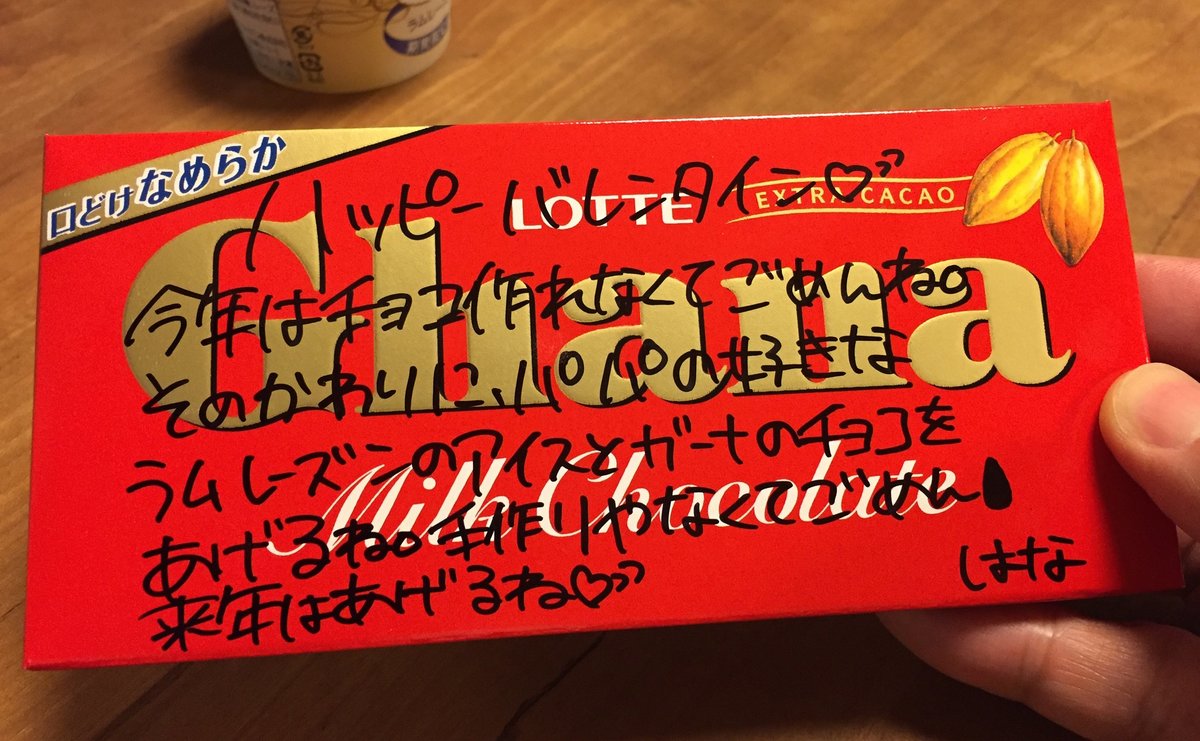 ラムレーズン
口どけなめらか
LOTTE
EXTRA CACAO
Ghana
Milk Chocolate
ハッピーバレンタイン♡
今年はチョコ作れなくてごめんね。
そのかわりに、パパの好きな
ラムレーズンのアイスとガーナのチョコを
あげるね。手作りやなくてごめん
来年はあげるね♡
はな